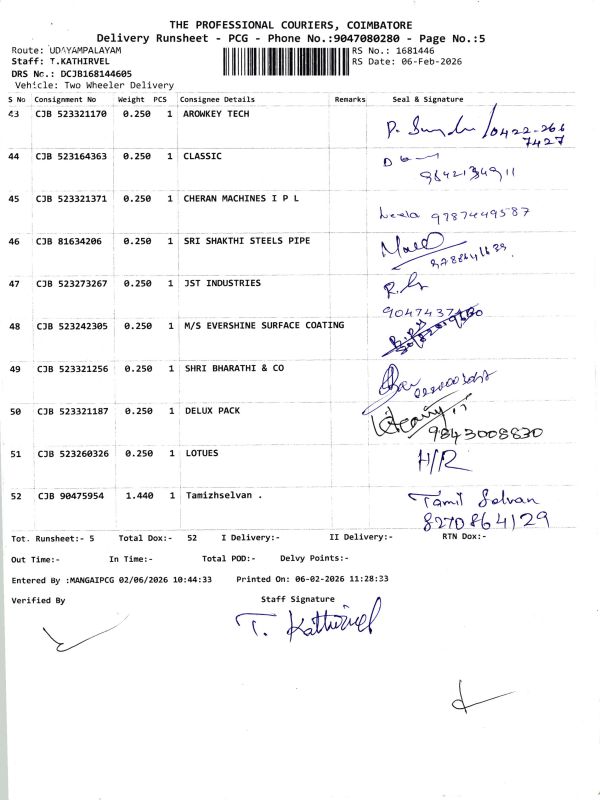 THE PROFESSIONAL COURIERS, COIMBATORE
Delivery Runsheet - PCG - Phone No.:9047080280 - Page No.:5
Route: UDAYAMPALAYAM RS No.: 1681446
Staff: T.KATHIRVEL RS Date: 06-Feb-2026
DRS No.: DCJB168144605
Vehicle: Two Wheeler Delivery
S No Consignment No Weight PCS Consignee Details Remarks Seal & Signature
43 CJB 523321170 0.250 1 AROWKEY TECH
0422-266
7427
44 CJB 523164363 0.250 1 CLASSIC
45 CJB 523321371 0.250 1 CHERAN MACHINES I P L
Leela 9787449587
46 CJB 81634206 0.250 1 SRI SHAKTHI STEELS PIPE
47 CJB 523273267 0.250 1 JST INDUSTRIES
48 CJB 523242305 0.250 1 M/S EVERSHINE SURFACE COATING
49 CJB 523321256 0.250 1 SHRI BHARATHI & CO
50 CJB 523321187 0.250 1 DELUX PACK
9843008830
51 CJB 523260326 0.250 1 LOTUES
H/R
52 CJB 90475954 1.440 1 Tamizhselvan .
Tamil Selvan
8270864129
Tot. Runsheet:- 5 Total Dox:- 52 I Delivery:- II Delivery:- RTN Dox:-
Out Time:- In Time:- Total POD:- Delvy Points:-
Entered By :MANGAIPCG 02/06/2026 10:44:33 Printed On: 06-02-2026 11:28:33
Verified By Staff Signature
T. Kathirvel